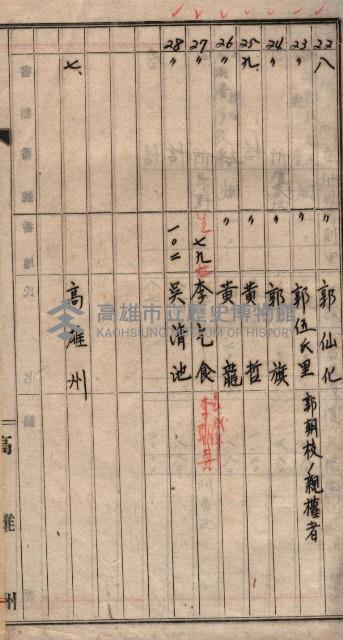 22 八 郭仙化
23 〃 郭伍氏里 郭朝枝ノ親權者
24 〃 郭旗
25 九、 〃 黄哲
26 〃 〃 黄龍
27 〃 七九 李乞食
28 〃 一〇二 吳清池
七、 高雄州
高雄州
高雄市立歷史博物館
KAOHSIUNG MUSEUM OF HISTORY